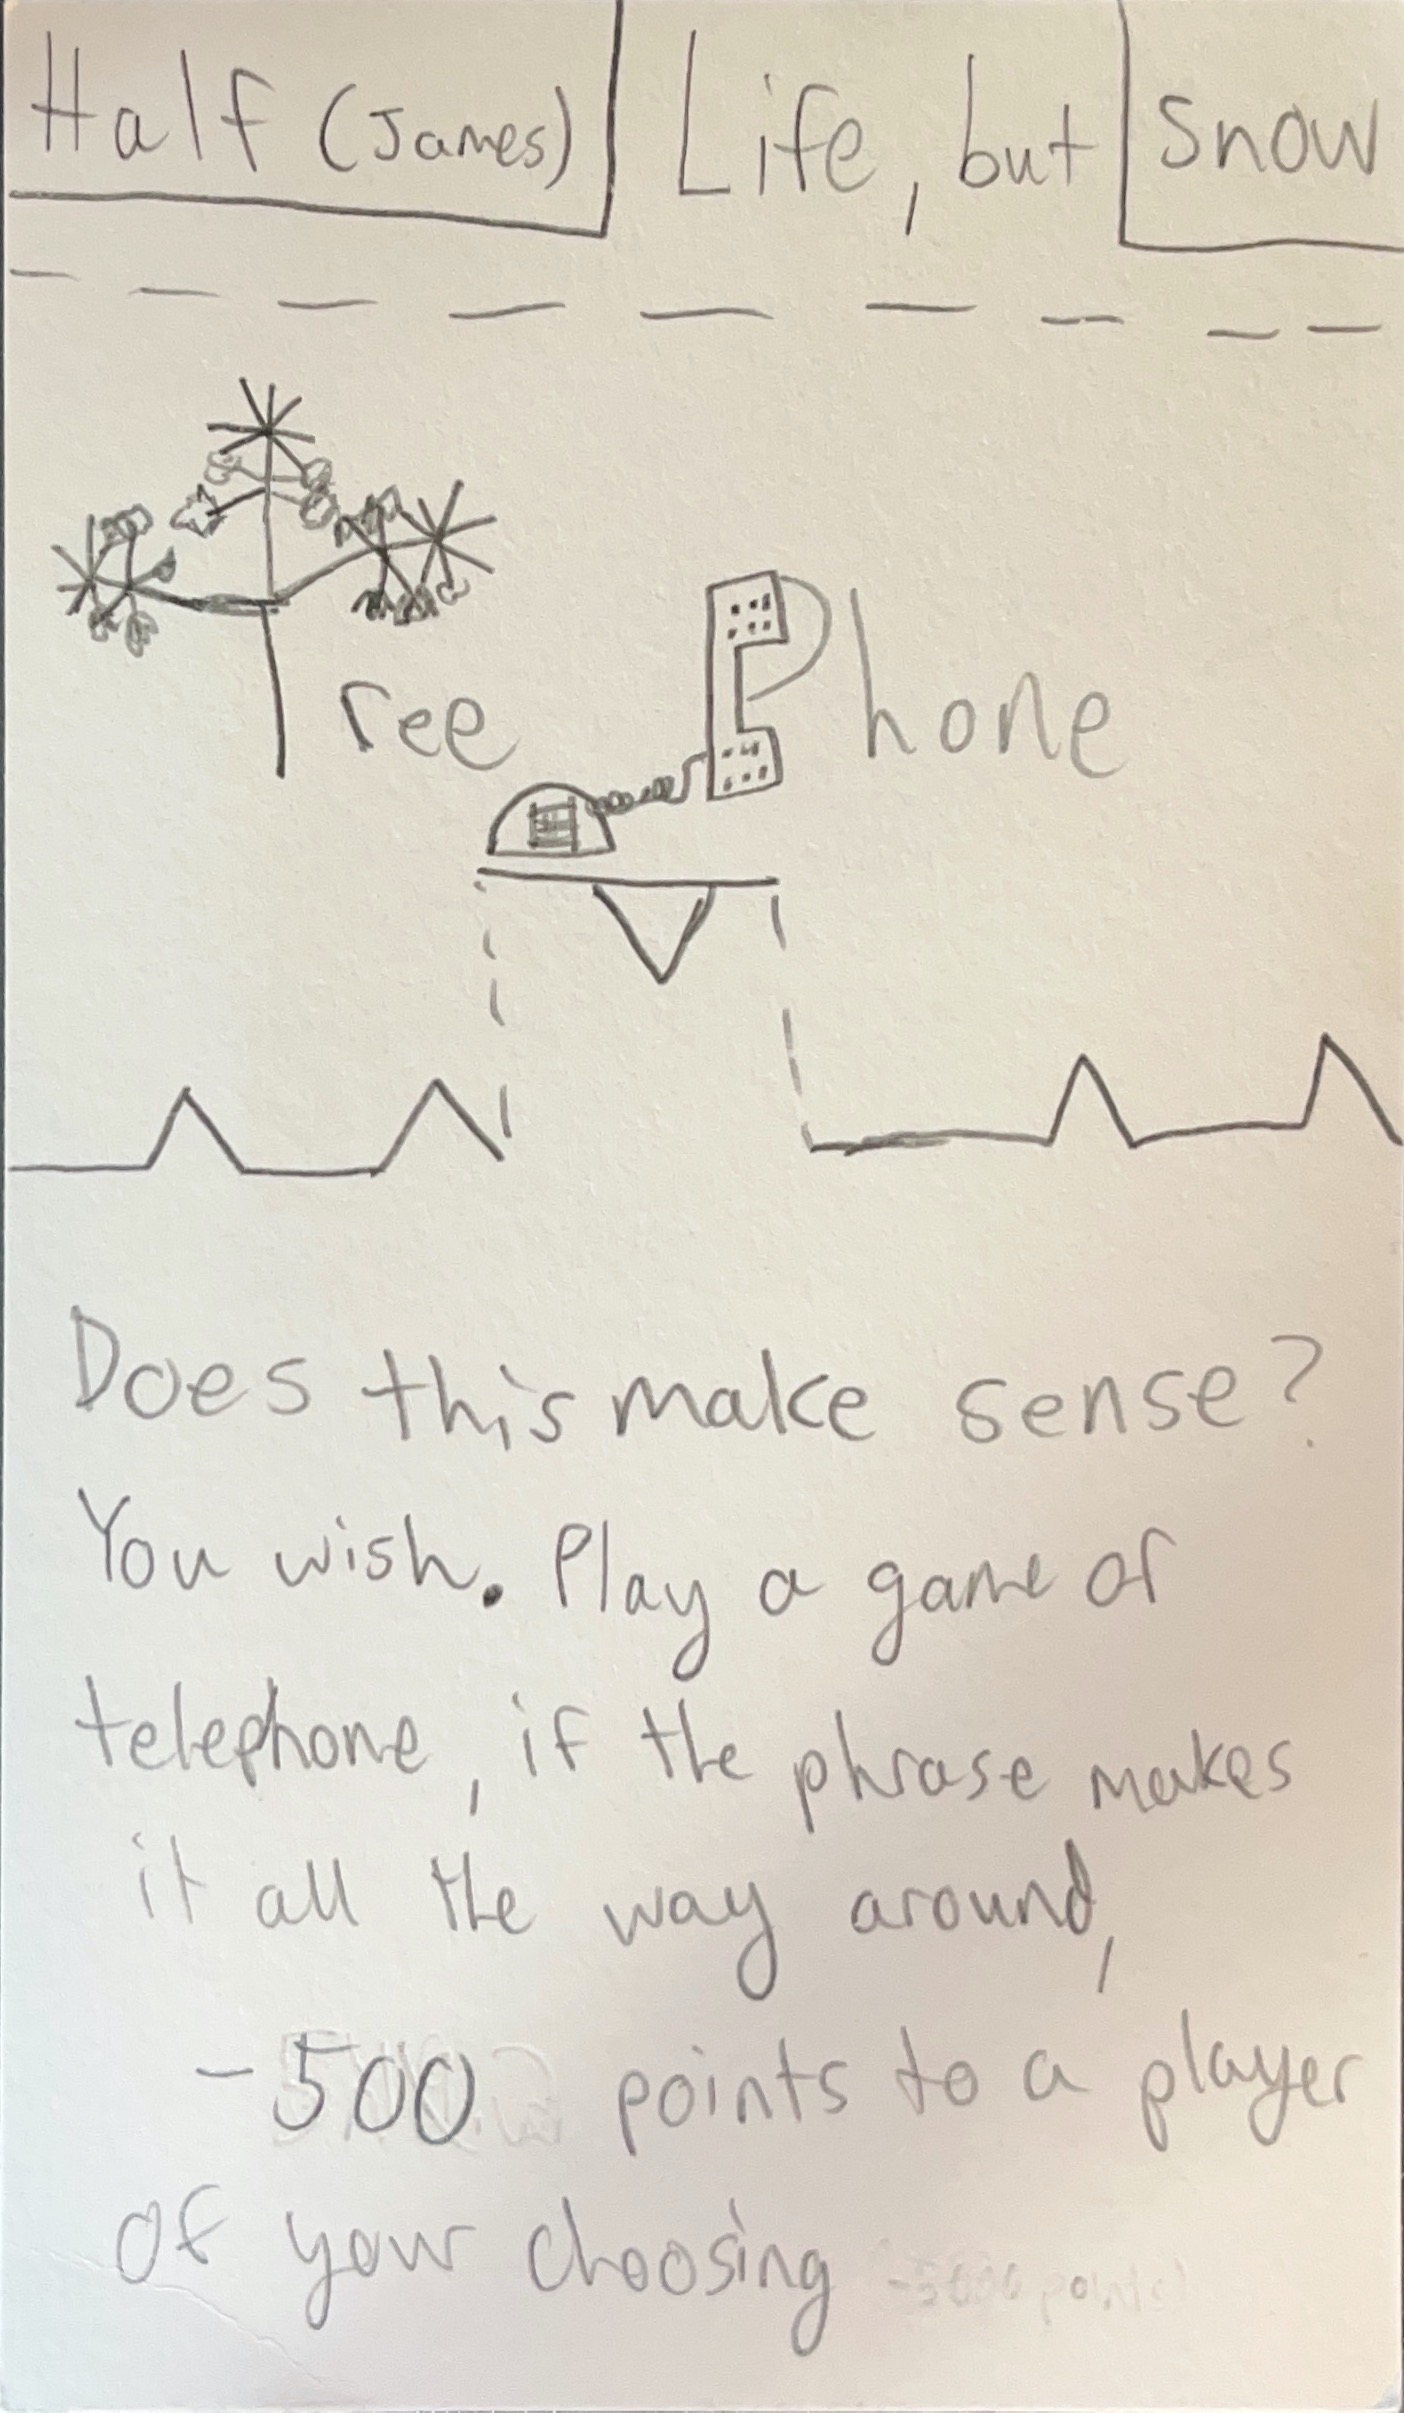 Half (James) Life, but Snow
Tree Phone
Does this make sense?
You wish. Play a game of
telephone, if the phrase makes
it all the way around,
-500 points to a player
of your choosing